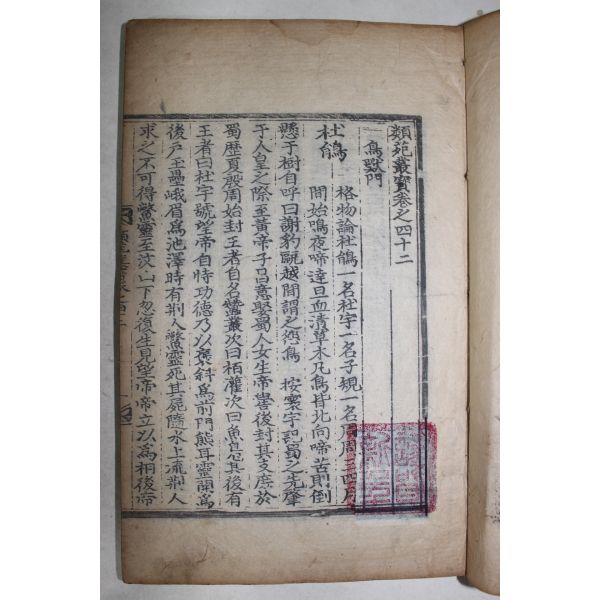 類苑叢寶卷之四十二
鳥獸門
杜鵑
格物論杜鵑一名杜宇一名子規一名周周三四月
間始鳴夜啼達旦血漬草木凡鳥皆北向啼苦則倒
懸于樹自呼曰謝豹甌越間謂之怨鳥 按寰宇記蜀之先肇
于人皇之際至黃帝子昌意娶蜀人女生帝嚳後封其支庶於
蜀歷夏殷周始封王者自名蠶叢次曰栢灌次曰魚鳧其後有
王者曰杜宇號望帝自恃功德乃以褒斜爲前門熊耳靈關爲
後戶玉壘峨眉爲池澤時有荆人鱉靈死其屍隨水上流荆人
求之不可得鱉靈至汶山下忽復生見望帝帝立以爲相後帝